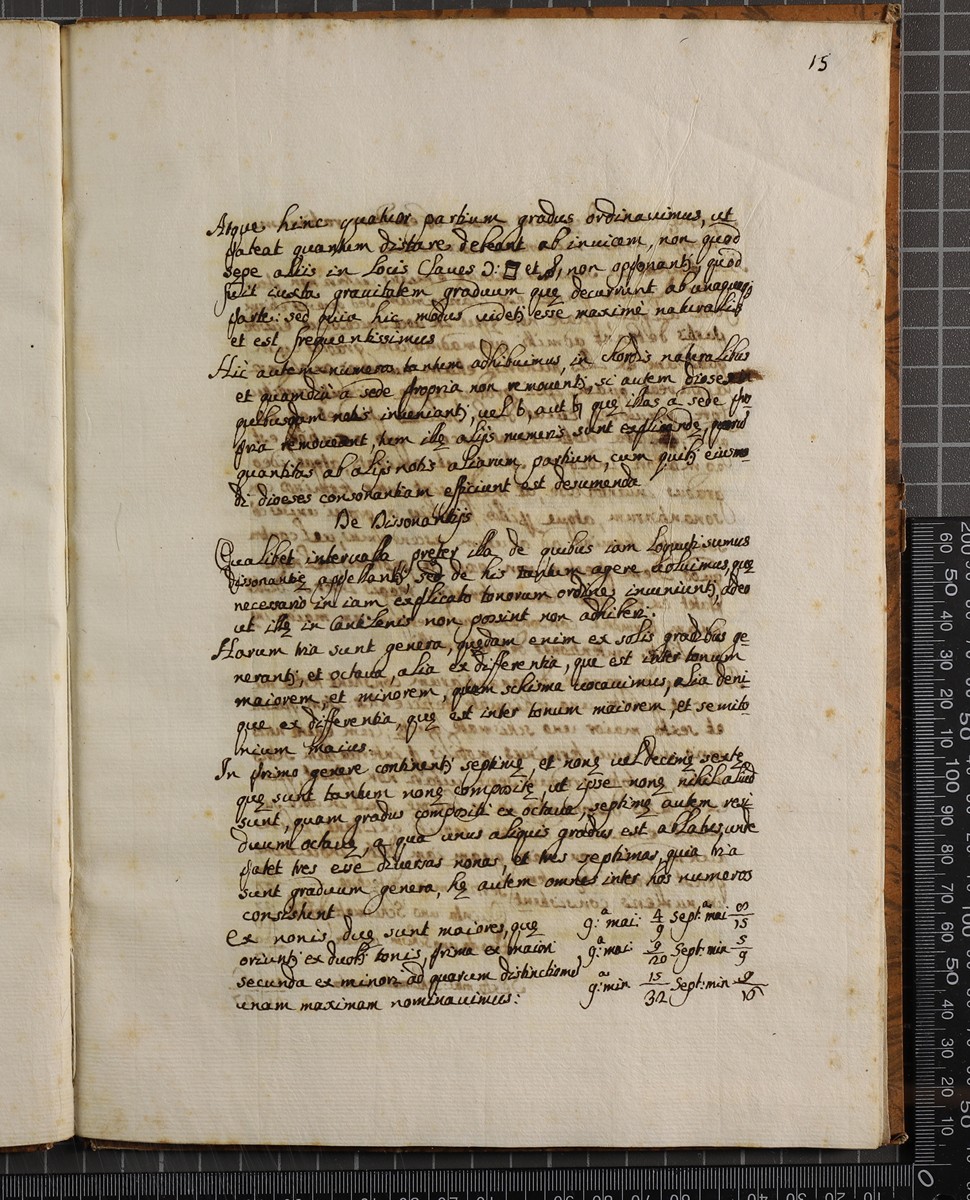 15
Atque hinc quatuor partium gradus ordinauimus, ut
pateat quantum distare debeant ab inuicem, non quod
sepe aliis in Locis Claues Ɔ: et non opponantȝ, quod
fit iuxta grauitatem graduum quę decurrunt ab unaquaqȝ
parte: sed quia hic modus uidetȝ esse maximè naturalis
et est frequentissimus
Hic autem numeros tantum adhibuimus, in chordis naturalibus
et quamdiù a sede propria non remouentȝ, si autem dioeses
quibusdam notis inueniantȝ, uel b, aut ♮ quę illas a sede pro
pria remoueant, tum illę alijs numeris sunt explicandę, quorum
quantitas ab alijs notis aliarum partium, cum quibȝ eiusmo
di dioeses consonantiam efficiunt est desumenda
De Dissonantijs
Qualibet interualla pręter illa de quibus iam Loquuti sumus
dissonantię appellantȝ, sed de his tantum agere uoluimus, quę
necessario in iam explicato tonorum ordine inueniuntȝ, adeo
ut illę in Cantilenis non possint non adhiberi:
Harum tria sunt genera, quędam enim ex solis gradibus ge
nerantȝ, et octaua, alia ex differentia, que est inter tonum
maiorem, et minorem, quam schisma uocauimus, alia deni
que ex differentia, quę est inter tonum maiorem, et semito
nium maius.
In primo genere continentȝ septimę, et nonę uel decimę sextę
quę sunt tantum nonę compositę, ut ipsę nonę nihil aliud
sunt, quam gradus compositi ex octaua, septimę autem resi
duum octauę, a qua unus aliquis gradus est ablatus, unde
patet tres esse diuersas nonas, et tres septimas, quia tria
sunt graduum genera, hę autem omnes inter hos numeros
consistunt
Ex nonis duę sunt maiores, quę 9:ᵃ mai: 4/9 Sept:ᵃ mai 8/15
oriuntȝ ex duobȝ tonis, prima ex maiori 9:ᵃ mai: 9/20 Sept: min 5/9
secunda ex minori ad quarum distinctionem 9:ᵃ min 15/32 Sept: min 9/16
unam maximam nominauimus: